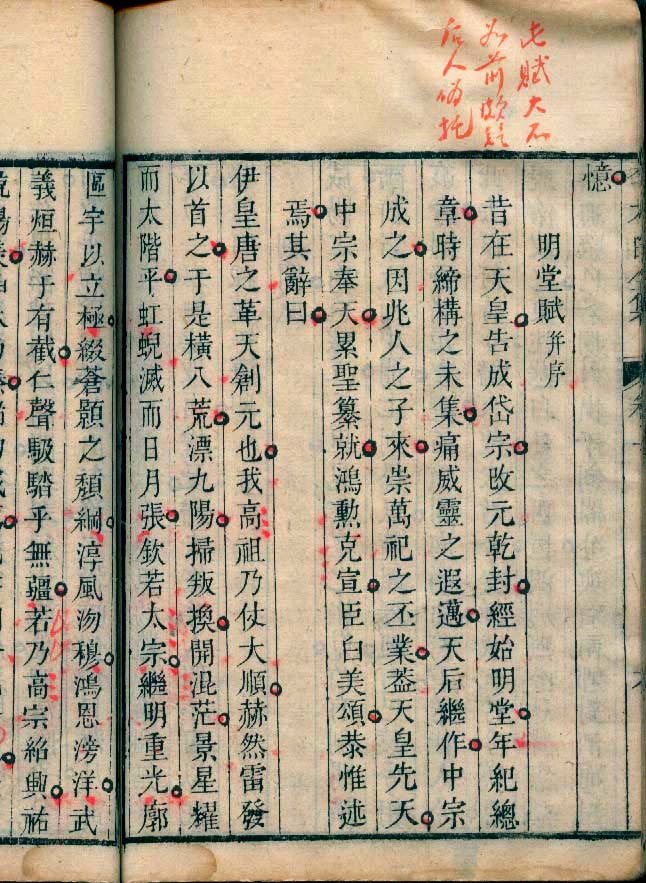 此賦大不
如前頗疑
后人偽托
憶
明堂賦并序
昔在天皇告成岱宗改元乾封經始明堂年紀總
章時締構之未集痛威靈之遐邁天后繼作中宗
成之因兆人之子來崇萬祀之丕業蓋天皇先天
中宗奉天累聖纂就鴻勳克宣臣白美頌恭惟述
焉其辭曰
伊皇唐之革天創元也我高祖乃仗大順赫然雷發
以首之于是橫八荒漂九陽掃叛換開混茫景星耀
而太階平虹蜺滅而日月張欽若太宗繼明重光廓
區宇以立極綴蒼顥之頹綱淳風沕穆鴻恩滂洋武
義烜赫于有截仁聲馺䭞乎無疆若乃高宗紹興祐